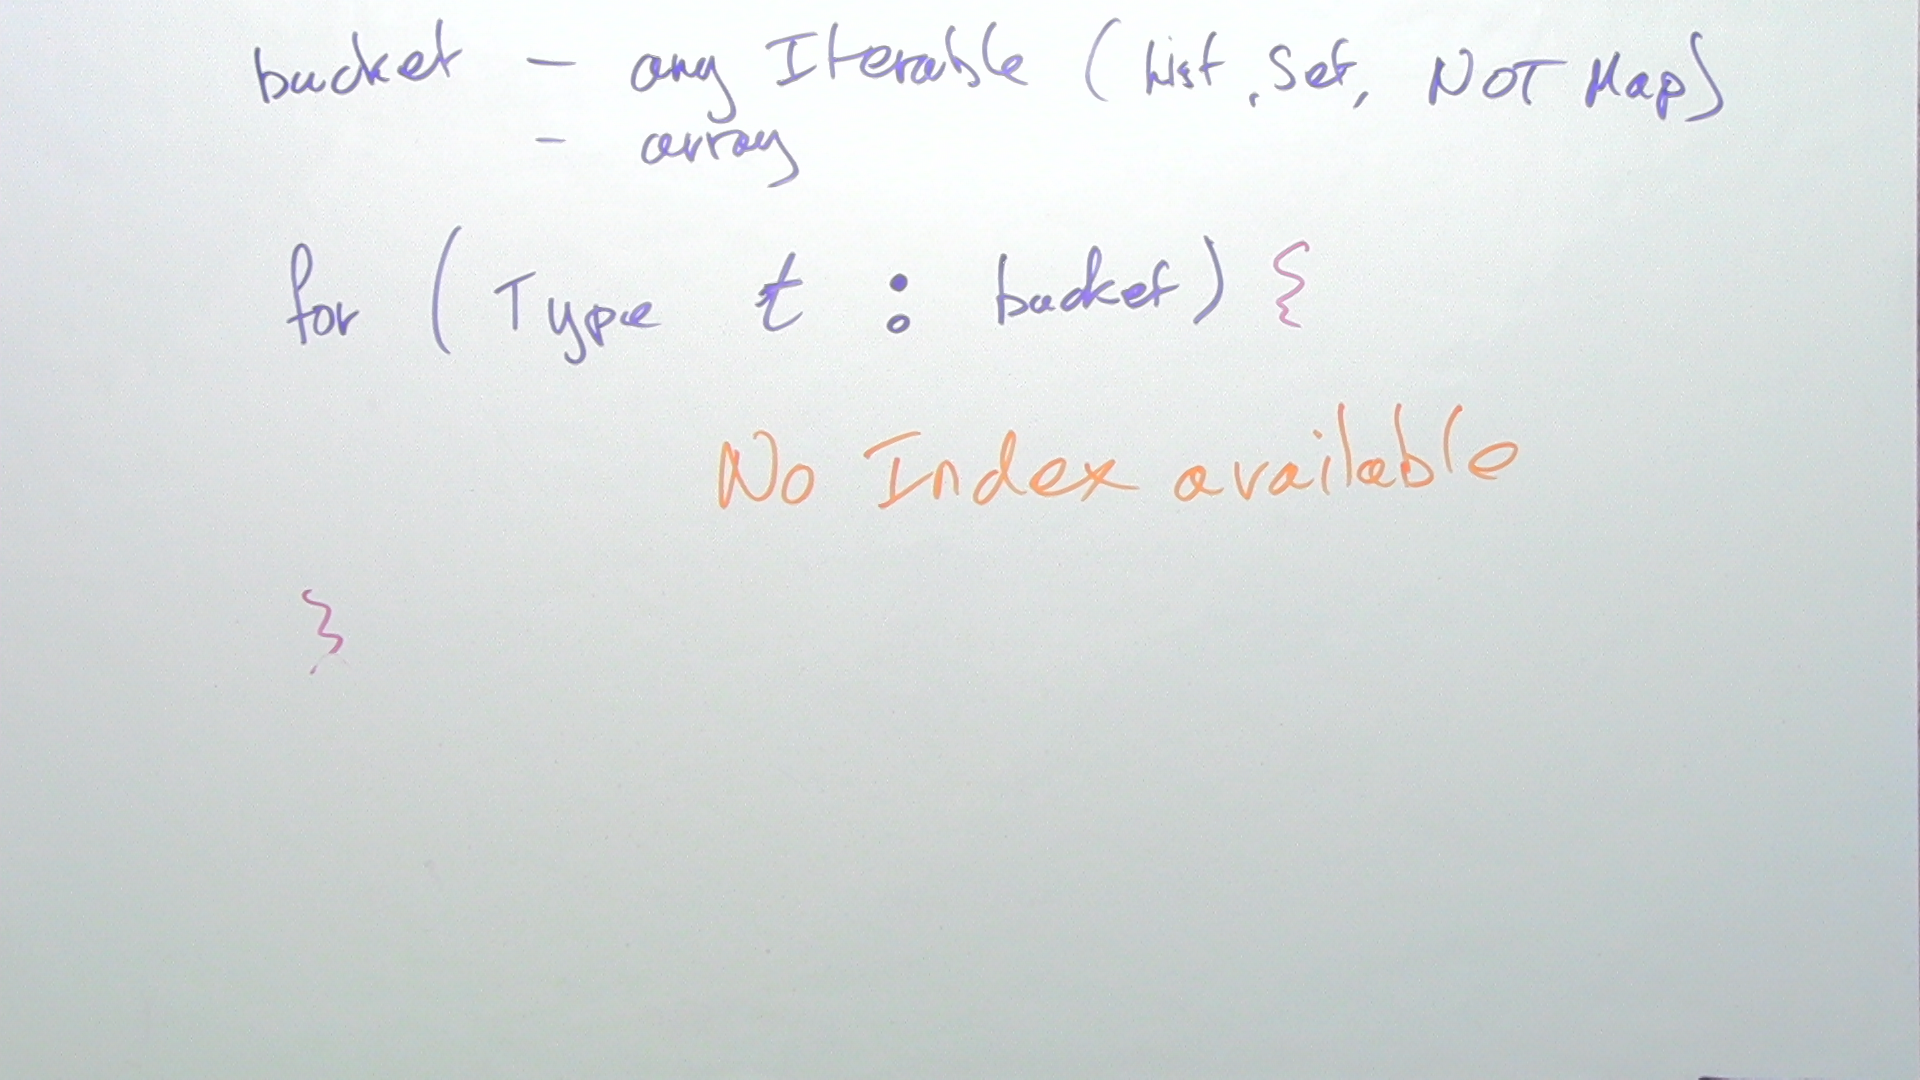 bucket - any Iterable (List, Set, NOT Map)
- array
for (Type t : bucket) {
No Index available
}